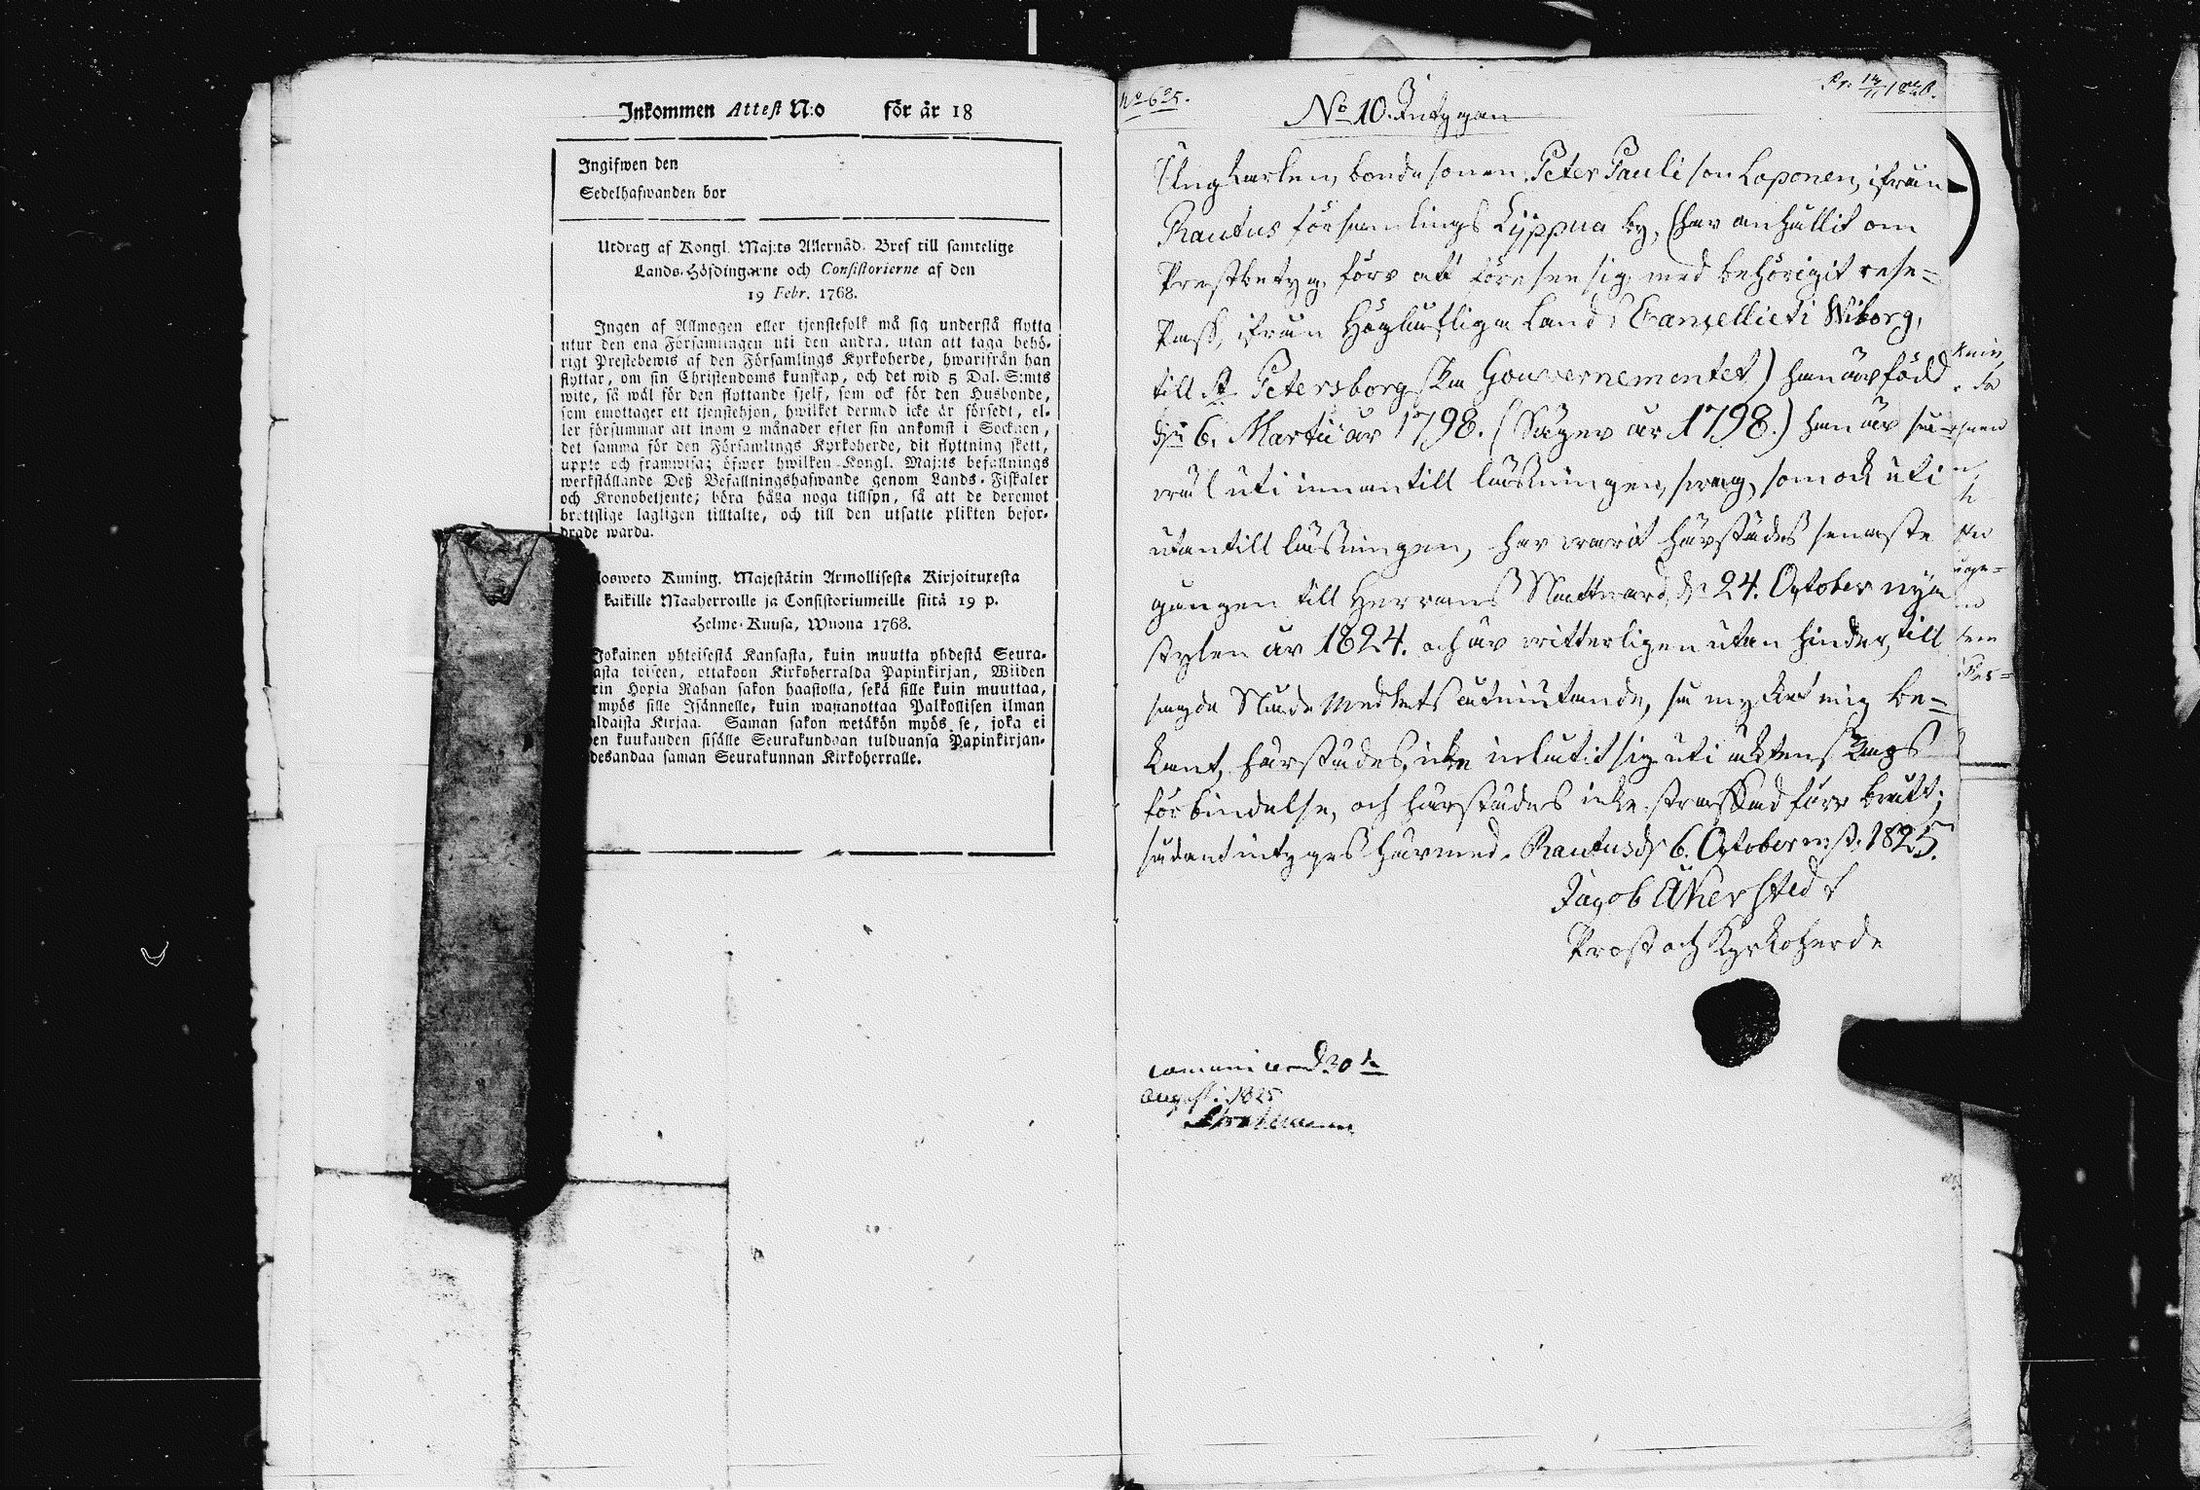 Inkommen Attest N:o för år 18
Ingifwen den
Sedelhafwanden bor
Utdrag af Kongl. Maj:ts Allernåd. Bref till samtelige
Lands-Höfdingarne och Consistorierne af den
19 Febr. 1768.
Ingen af Allmogen eller tjenstefolk må sig understå flytta
utur den ena Församlingen uti den andra, utan att taga behö-
rigt Prestebewis af den Församlings Kyrkoherde, hwarifrån han
flyttar, om sin Christendoms kunskap, och det wid 5 Dal. S:mts
wite, så wäl för den flyttande sjelf, som ock för den Husbonde,
som emottager ett tjenstehjon, hwilket dermed icke är försedt, el-
ler försummar att inom 2 månader efter sin ankomst i Socknen,
det samma för den Församlings Kyrkoherde, dit flyttning skett,
uppte och framwisa; öfwer hwilken Kongl. Maj:ts befallnings
werkställande Deß Befallningshafwande genom Lands-Fiskaler
och Kronobetjente; böra hålla noga tillsyn, så att de deremot
brottslige lagligen tilltalte, och till den utsatte plikten befor-
drade warda.
losweto Kuning. Majestätin Armollisesta Kirjoituxesta
kaikille Maaherroille ja Consistoriumeille siitä 19 p.
Helme-Kuusa, Wuona 1768.
Jokainen yhteisestä Kansasta, kuin muutta yhdestä Seura-
asta toiseen, ottakoon Kirkoherralda Papinkirjan, Wiiden
rin Hopia Rahan sakon haastolla, sekä sille kuin muuttaa,
myös sille Isännelle, kuin wastanottaa Palkollisen ilman
aldaista Kirjaa. Saman sakon wetäkön myös se, joka ei
en kuukauden sisälle Seurakundaan tulduansa Papinkirjan-
desandaa saman Seurakunnan Kirkoherralle.
No 635.
No 10. Intygan
Ungkarlen, bondesonen Peter Pauli son Loponen, ifrån
Rautus församlings Lyppua by, (har anhållit om
Prestbetyg, förr att förse sig, med behörigit rese-
Pass, ifrån Höglofliga Lands Cancelliet i Wiborg,
till St Petersborgska Gouvernementet) han är född
dn 6. Martii år 1798. (Säger år 1798.) han är så
wäl uti innantill läsningen, swag, som ock uti
utantill läsningen, har warit härstädes senaste
gången till Herrans Nattward, dn 24. October nya
stylen år 1824. och är witterligen utan hinder, till
sagde Nåde Medlets åtniutande, så mycket mig be-
kant, härstädes, icke inlåtit sig uti äktenskaps
förbindelse, och härstädes icke straffad förr brott;
sådant intygas härmed. Rautus d 6. October m st. 1825.
Jacob Åkerstedt
Prost och Kyrkoherde
d 30
August: 1825